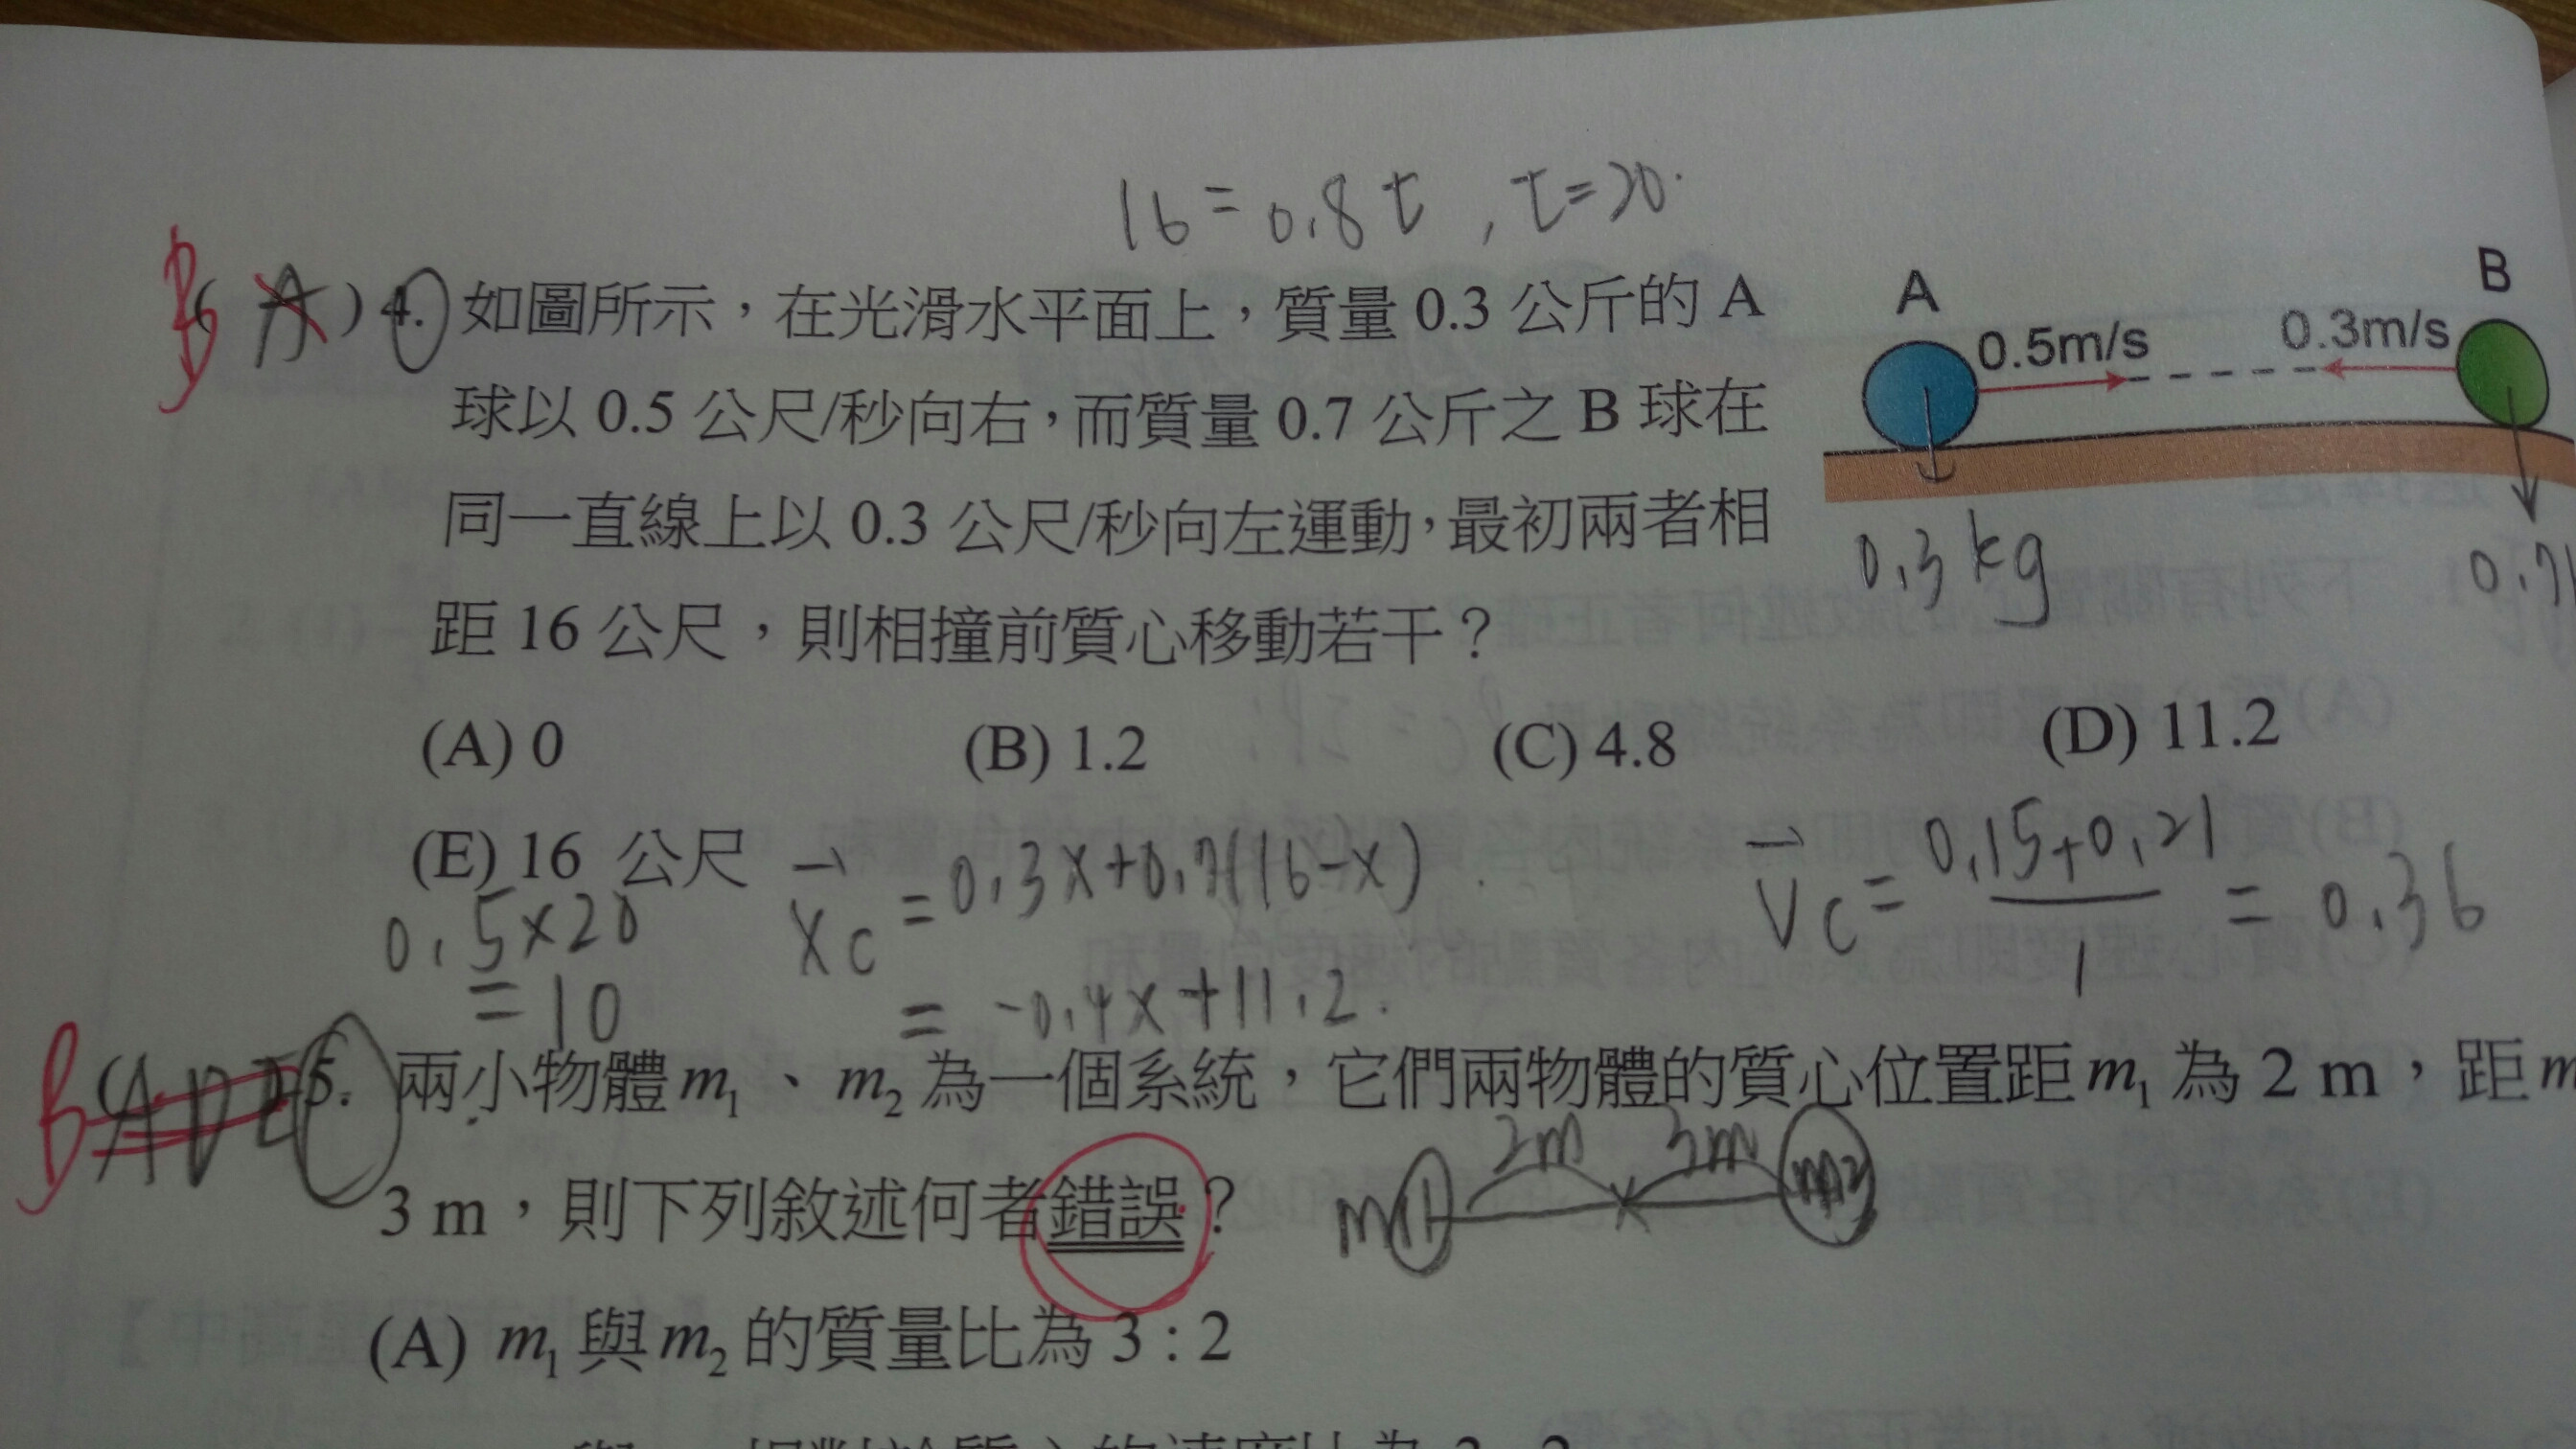 16 = 0.8t , t=20.
B ( A ) 4. 如圖所示，在光滑水平面上，質量 0.3 公斤的 A
球以 0.5 公尺/秒向右，而質量 0.7 公斤之 B 球在
同一直線上以 0.3 公尺/秒向左運動，最初兩者相
距 16 公尺，則相撞前質心移動若干？
A
B
0.5m/s
0.3m/s
0.3 kg
0.7
(A) 0 (B) 1.2 (C) 4.8 (D) 11.2
(E) 16 公尺
0.5×20
=10
Xc = 0.3x+0.7(16-x)
= -0.4x+11.2.
Vc = 0.15+0.21 / 1 = 0.36
B (ADE 5. 兩小物體 m₁、m₂ 為一個系統，它們兩物體的質心位置距 m₁ 為 2 m，距 m
3 m，則下列敘述何者錯誤？
m1 2m 3m m2
(A) m₁ 與 m₂ 的質量比為 3 : 2